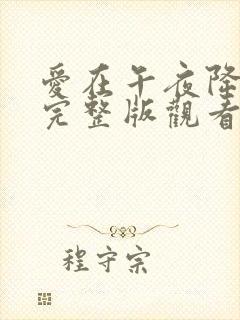 愛在午夜降
完整版觀看
程守宗